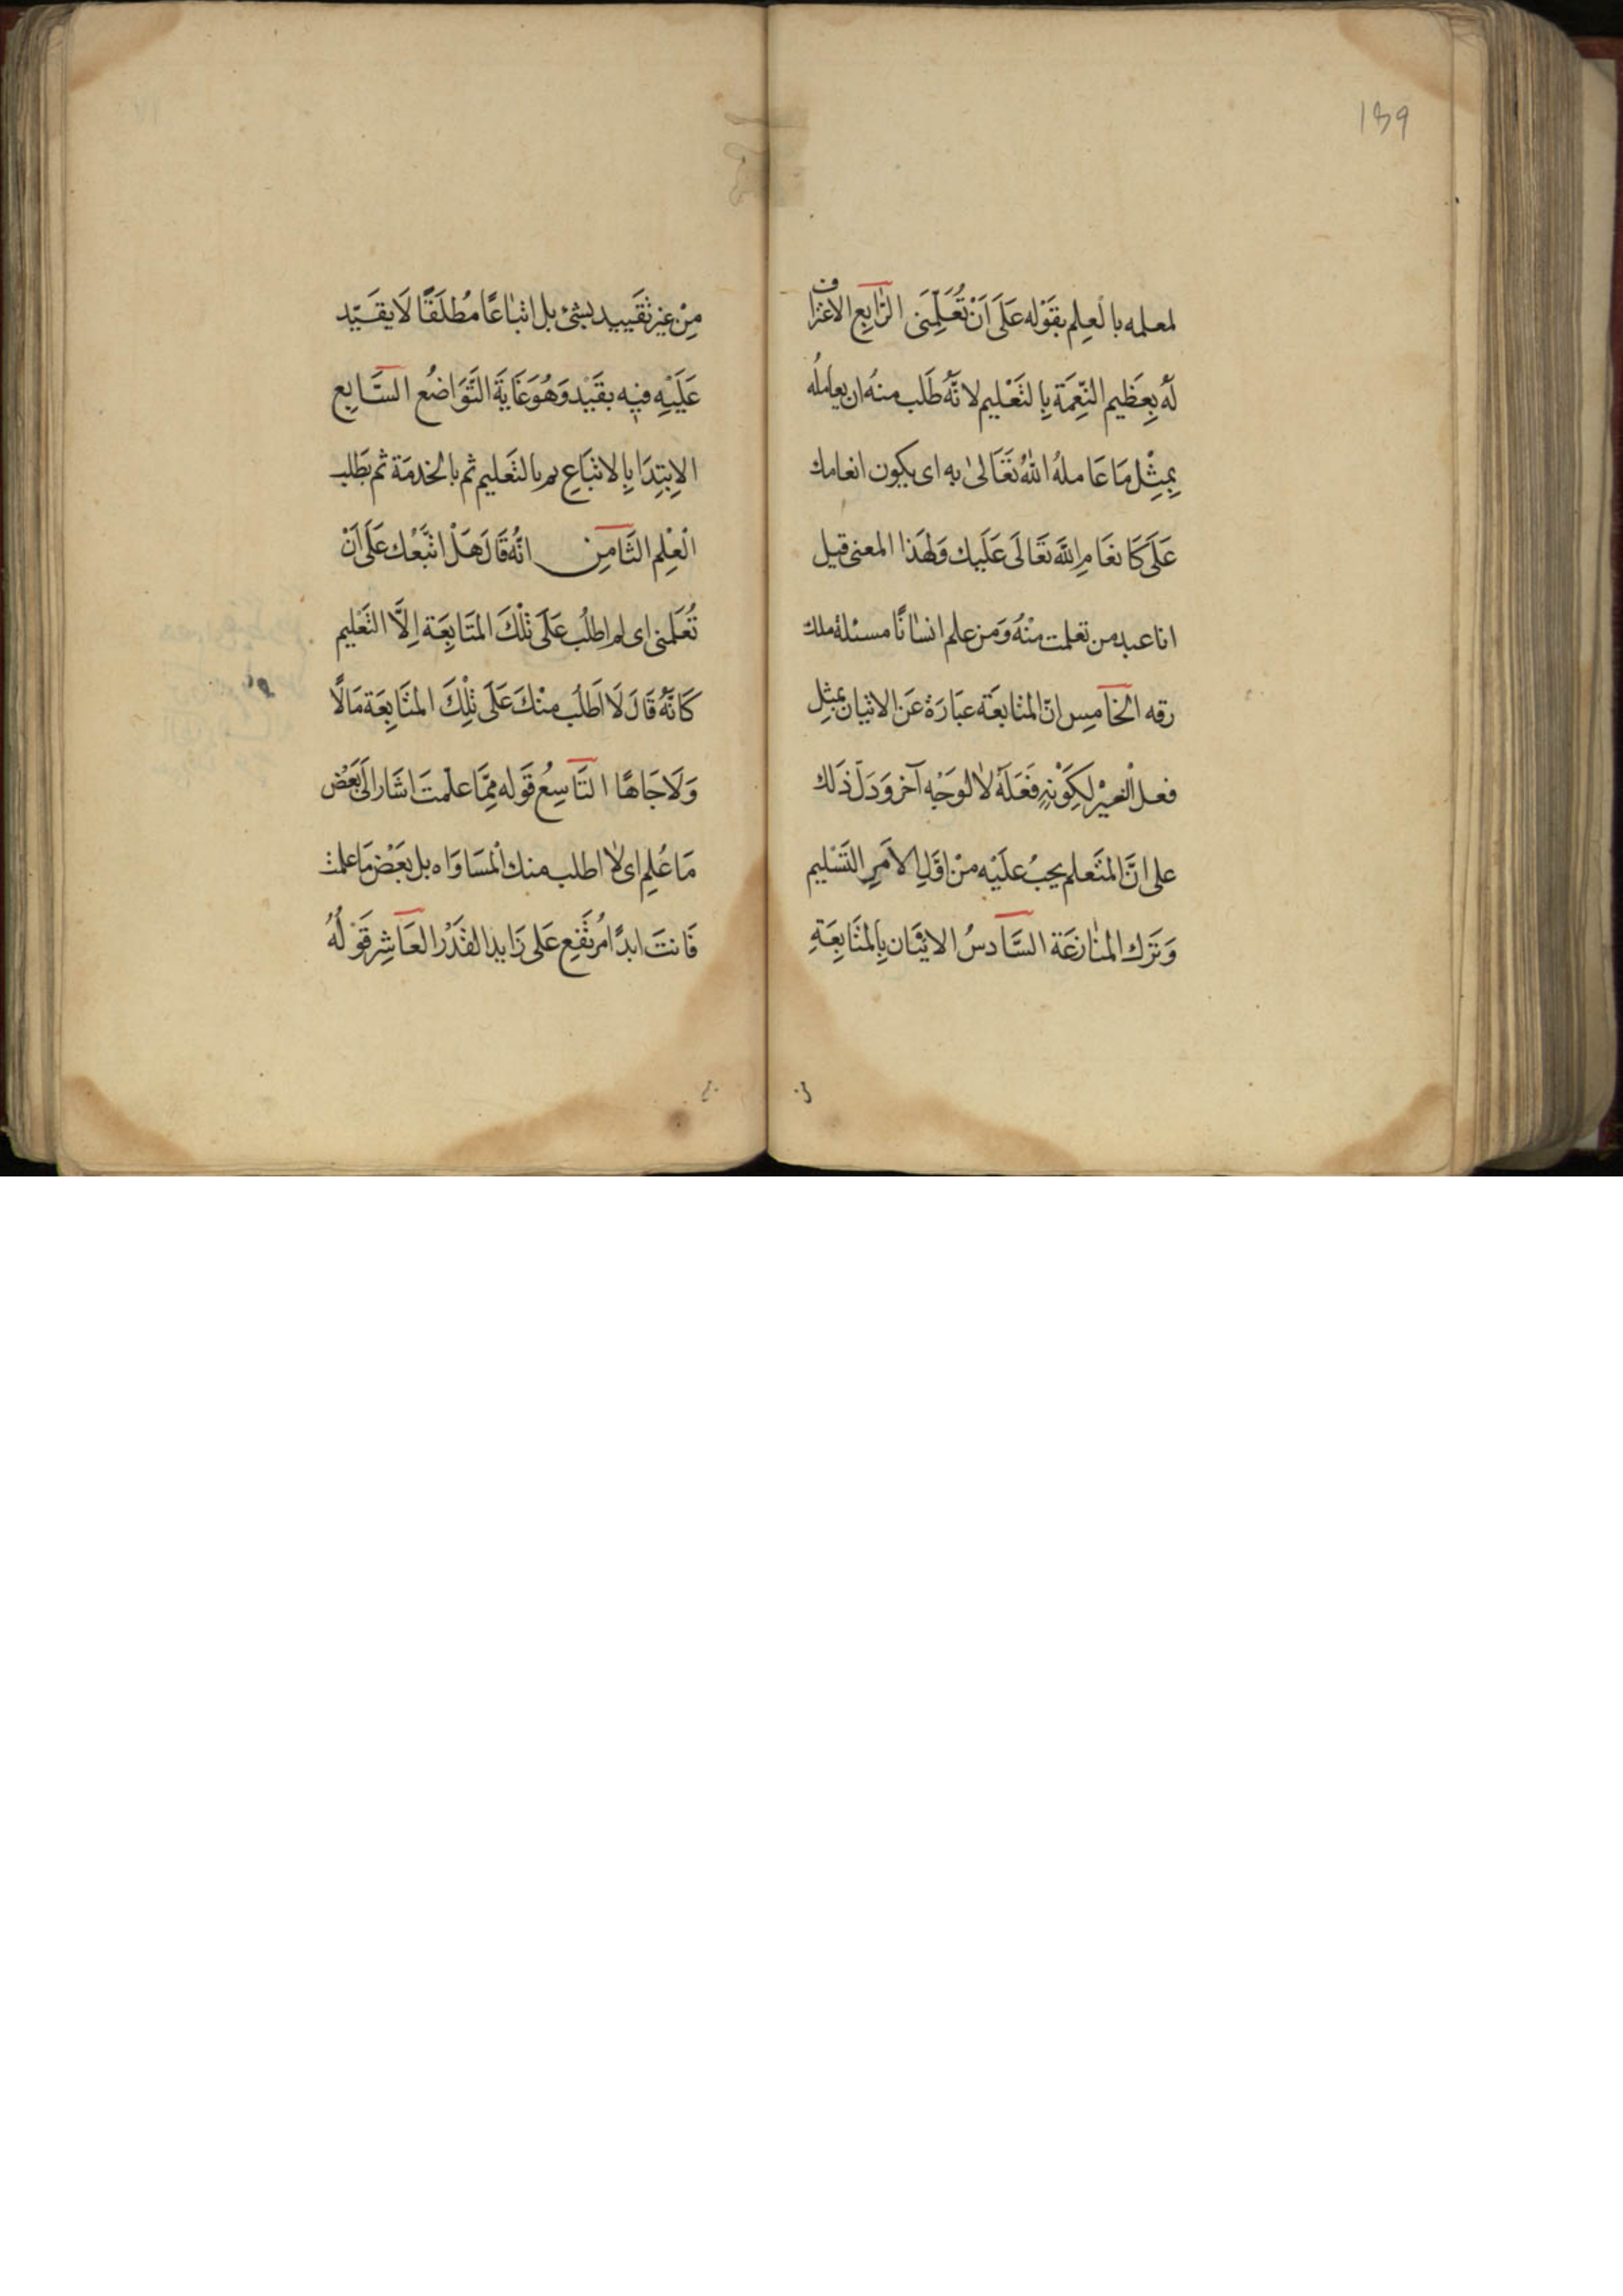 139
لمعلمه بالعِلم بقَوْله عَلَى اَنْ تُعَلِّمَنَى الرَّابِع الاعتراف
لَهُ بِعَظِيم النِّعمَة بِالتَعْليم لانّهُ طَلب منهُ ان يعاملهُ
بِمِثْل مَا عَامله اللهُ تعَالىٰ به اى يكون انعامك
عَلَىَّ كَانعَام اللهَ تعَالَى عَلَيك وَلهَذا المعنى قيل
انا عبد من تعلمت منْهُ وَمَن علم انسَانًا مسئلة ملك
رقه الخَامِس انّ المتابعَة عبَارَة عَن الاتيان بمثل
فعل الغيْر لكِوْنِه فَعَلَهُ لا لوَجْه آخر وَدَلّ ذَلك
على انَّ المتَعلم يجبُ علَيْه منْ اوَّلِ الامَرِ التَسْليم
وَتَرك المنَازعَة السَّادسُ الاتيْان بِالمتَابِعَةِ
مِنْ غير تقَييد بشئ بل اتبَاعًا مُطلَقًا لَا يقَيّد
عَلَيْهِ فيه بقَيْد وَهُوَ غَايَة التَّوَاضُع السَّابِع
الاِبتِدَا بِالاتبَاعِ ثم بالتَعليم ثم بالخدمَة ثم بطَلب
الْعْلِم الثَامِن انّهُ قَالَ هَلْ اتبَّعُك عَلَى اَنْ
تُعَلمنى اى لم اطلُب عَلَى تْلكَ المتَابِعَة اِلَّا التَعْليم
كَانّهُ قَالَ لَا اَطلُب منْكَ عَلَى تْلِكَ المتَابِعَة مَالًا
وَلَا جَاهًا التَاسِعُ قَوله مِمَّا علّمتَ اشَار الَى بَعْض
مَا عُلِم اى لا اطلب منك المسَاوَاه بل بَعْض مَا علمت
فَانتَ ابدًا مُرتَفِع عَلى زَايد القَدْر العَاشِر قَوْلُهُ